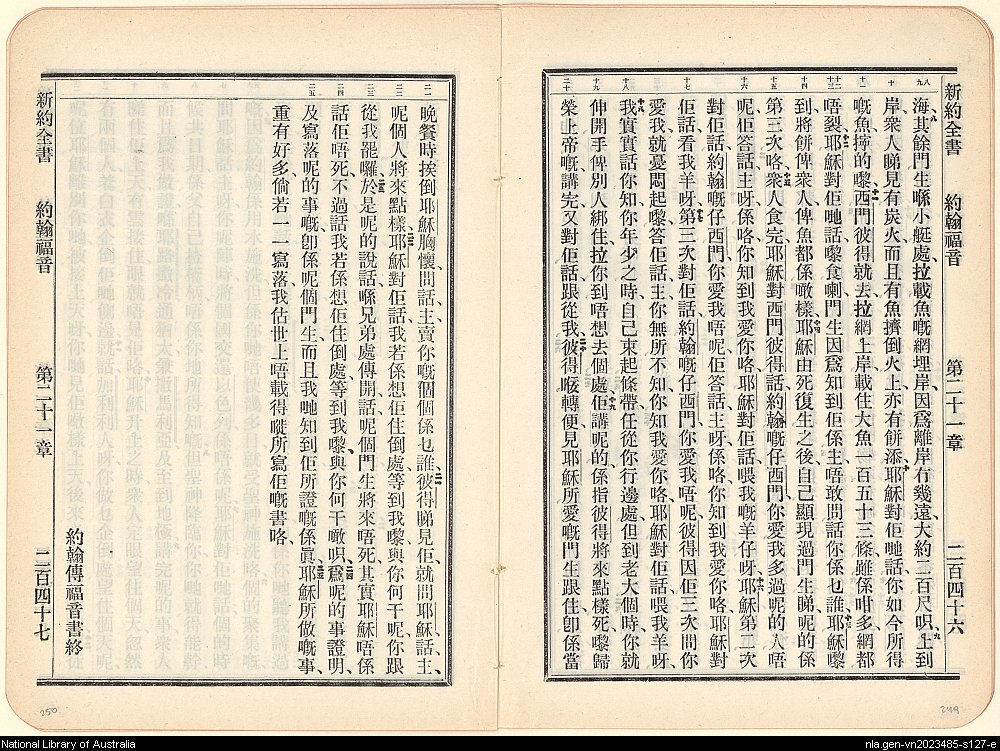 新約全書 約翰福音 第二十一章 二百四十六
海、其餘門生喺小艇處、拉載魚嘅網埋岸、因爲離岸冇幾遠、大約二百尺唄、上到
岸、衆人睇見有炭火、而且有魚擠倒火上、亦有餅添、耶穌對佢哋話、你如今所得
嘅魚、擰的嚟、西門彼得就去拉網上岸、載住大魚一百五十三條、雖係咁多、網都
唔裂、耶穌對佢哋話、嚟食喇、門生因爲知到佢係主、唔敢問話、你係乜誰、耶穌嚟
到、將餅俾衆人、俾魚都係噉樣、耶穌由死復生之後、自己顯現過門生睇、呢的係
第三次咯、衆人食完、耶穌對西門彼得話、約翰嘅仔西門、你愛我多過呢的人唔
呢、佢答話、主呀、係咯、你知到我愛你咯、耶穌對佢話、喂我嘅羊仔呀、耶穌第二次
對佢話、約翰嘅仔西門、你愛我唔呢、佢答話、主呀、係咯、你知到我愛你咯、耶穌對
佢話、看我羊呀、第三次對佢話、約翰嘅仔西門、你愛我唔呢、彼得因佢三次問你
愛我、就憂悶起嚟、答佢話、主、你無所不知、你知我愛你咯、耶穌對佢話、喂我羊呀、
我實實話你知、你年少之時、自己束起條帶、任從你行邊處、但到老大個時、你就
伸開手、俾別人綁住、拉你到唔想去個處、佢講呢的、係指彼得將來點樣死嚟歸
榮上帝嘅、講完、又對佢話、跟從我、彼得𠹌轉便、見耶穌所愛嘅門生跟住、卽係當
新約全書 約翰福音 第二十一章 二百四十七
晚餐時、挨倒耶穌胸懷、問話、主、賣你嘅個個係乜誰、彼得睇見佢、就問耶穌話、主、
呢個人將來點樣、耶穌對佢話、我若係想佢住倒處、等到我嚟、與你何干呢、你跟
從我罷囉、於是呢的說話喺兄弟處傳開、話呢個門生將來唔死、其實耶穌唔係
話佢唔死、不過話我若係想佢住倒處、等到我嚟、與你何干噉唄、爲呢的事證明、
及寫落呢的事嘅、卽係呢個門生、而且我哋知到佢所證嘅係眞、耶穌所做嘅事、
重有好多、倘若一一寫落、我估世上唔載得嗮所寫佢嘅書咯、
約翰傳福音書終
250
249
National Library of Australia
nla.gen-vn2023485-s127-e